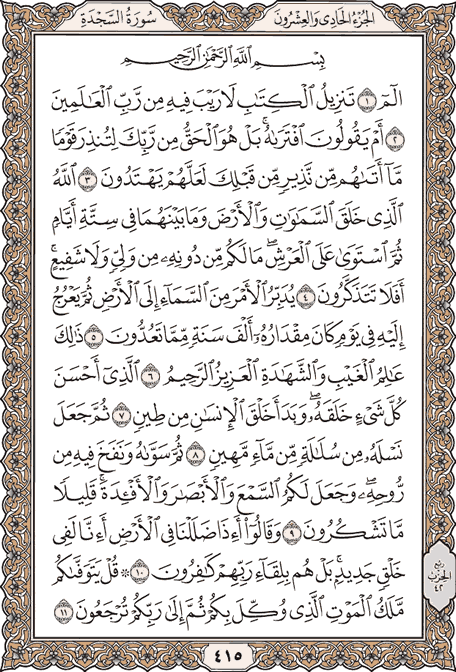 الجزء الحادي والعشرون
سورة السجدة
بِسْمِ ٱللَّهِ ٱلرَّحْمَٰنِ ٱلرَّحِيمِ
الٓمٓ ١ تَنزِيلُ ٱلْكِتَٰبِ لَا رَيْبَ فِيهِ مِن رَّبِّ ٱلْعَٰلَمِينَ
٢ أَمْ يَقُولُونَ ٱفْتَرَىٰهُ ۚ بَلْ هُوَ ٱلْحَقُّ مِن رَّبِّكَ لِتُنذِرَ قَوْمًا
مَّآ أَتَىٰهُم مِّن نَّذِيرٍ مِّن قَبْلِكَ لَعَلَّهُمْ يَهْتَدُونَ ٣ ٱللَّهُ
ٱلَّذِى خَلَقَ ٱلسَّمَٰوَٰتِ وَٱلْأَرْضَ وَمَا بَيْنَهُمَا فِى سِتَّةِ أَيَّامٍ
ثُمَّ ٱسْتَوَىٰ عَلَى ٱلْعَرْشِ ۖ مَا لَكُم مِّن دُونِهِۦ مِن وَلِىٍّ وَلَا شَفِيعٍ ۚ
أَفَلَا تَتَذَكَّرُونَ ٤ يُدَبِّرُ ٱلْأَمْرَ مِنَ ٱلسَّمَآءِ إِلَى ٱلْأَرْضِ ثُمَّ يَعْرُجُ
إِلَيْهِ فِى يَوْمٍ كَانَ مِقْدَارُهُۥٓ أَلْفَ سَنَةٍ مِّمَّا تَعُدُّونَ ٥ ذَٰلِكَ
عَٰلِمُ ٱلْغَيْبِ وَٱلشَّهَٰدَةِ ٱلْعَزِيزُ ٱلرَّحِيمُ ٦ ٱلَّذِىٓ أَحْسَنَ
كُلَّ شَىْءٍ خَلَقَهُۥ ۖ وَبَدَأَ خَلْقَ ٱلْإِنسَٰنِ مِن طِينٍ ٧ ثُمَّ جَعَلَ
نَسْلَهُۥ مِن سُلَٰلَةٍ مِّن مَّآءٍ مَّهِينٍ ٨ ثُمَّ سَوَّىٰهُ وَنَفَخَ فِيهِ مِن
رُّوحِهِۦ ۖ وَجَعَلَ لَكُمُ ٱلسَّمْعَ وَٱلْأَبْصَٰرَ وَٱلْأَفْـِٔدَةَ ۚ قَلِيلًا
مَّا تَشْكُرُونَ ٩ وَقَالُوٓا۟ أَءِذَا ضَلَلْنَا فِى ٱلْأَرْضِ أَءِنَّا لَفِى
خَلْقٍ جَدِيدٍۭ ۚ بَلْ هُم بِلِقَآءِ رَبِّهِمْ كَٰفِرُونَ ١٠ ۞ قُلْ يَتَوَفَّىٰكُم
مَّلَكُ ٱلْمَوْتِ ٱلَّذِى وُكِّلَ بِكُمْ ثُمَّ إِلَىٰ رَبِّكُمْ تُرْجَعُونَ ١١
ربع
الحزب
٤٢
٤١٥